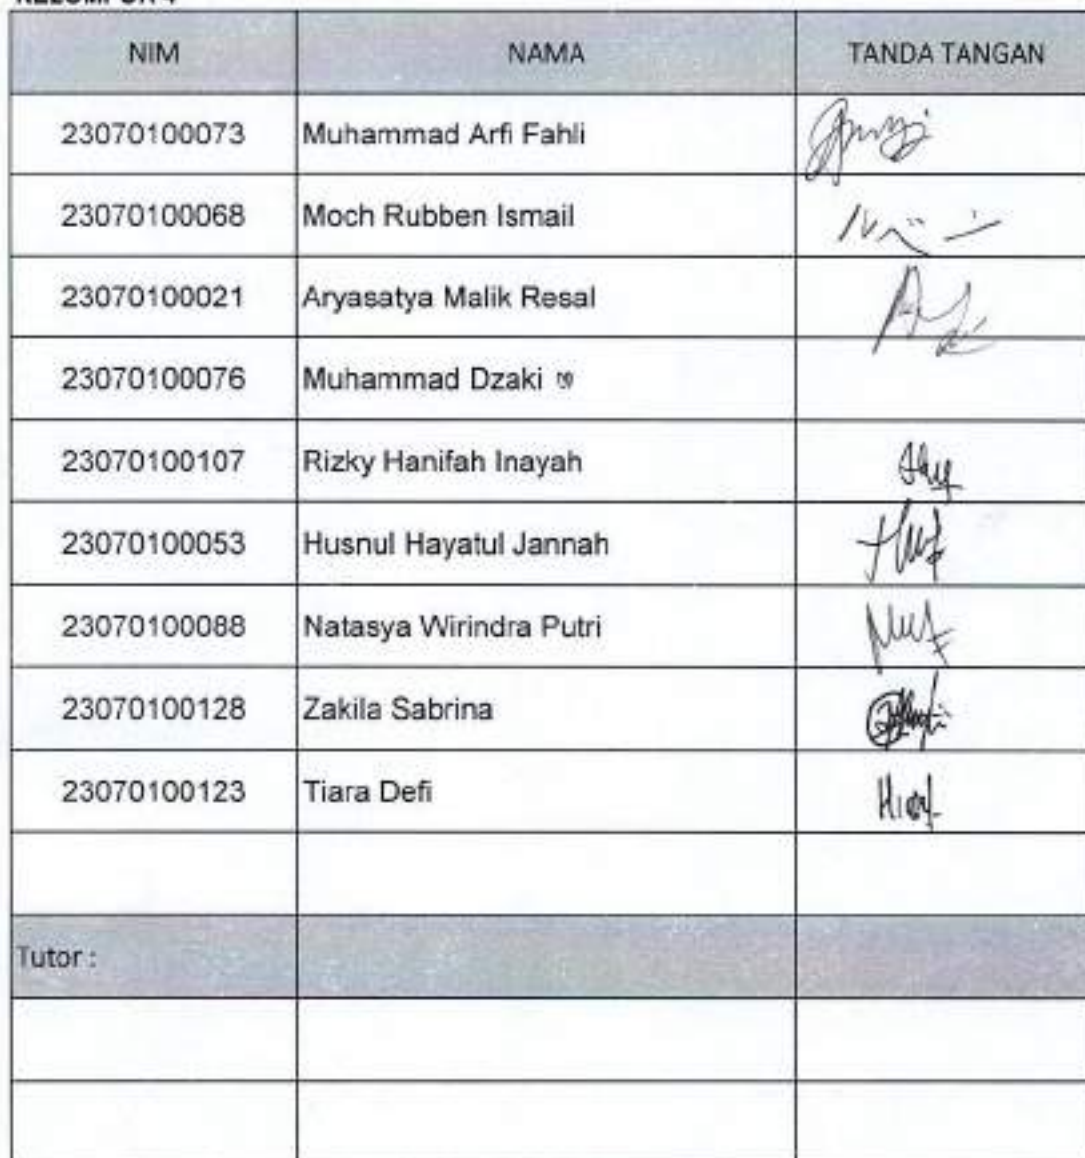 NIM NAMA TANDA TANGAN
23070100073 Muhammad Arfi Fahli
23070100068 Moch Rubben Ismail
23070100021 Aryasatya Malik Resal
23070100076 Muhammad Dzaki
23070100107 Rizky Hanifah Inayah
23070100053 Husnul Hayatul Jannah
23070100088 Natasya Wirindra Putri
23070100128 Zakila Sabrina
23070100123 Tiara Defi
Tutor :